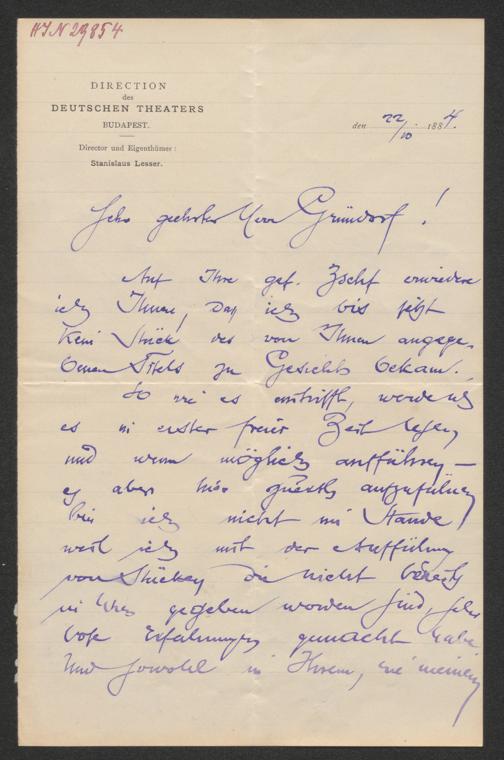 HIN 29854
DIRECTION
des
DEUTSCHEN THEATERS
BUDAPEST.
Director und Eigenthümer:
Stanislaus Lesser.
den 22/10 1884.
Sehr geehrter Herr Gründorf!
Auf Ihre gef. Zschft erwiedere
ich Ihnen, daß ich bis jetzt
kein Stück des von Ihnen angege-
benen Titels zu Gesicht bekam.
So wie es eintrifft, werde ich
es in erster freier Zeit lesen
und wenn möglich aufführen —
es aber hier zuerst aufzuführen
bin ich nicht im Stande,
weil ich mit der Aufführung
von Stücken die nicht bereits
in Wien gegeben worden sind, sehr
böse Erfahrungen gemacht habe.
Und sowohl in Ihrem, wie meinem